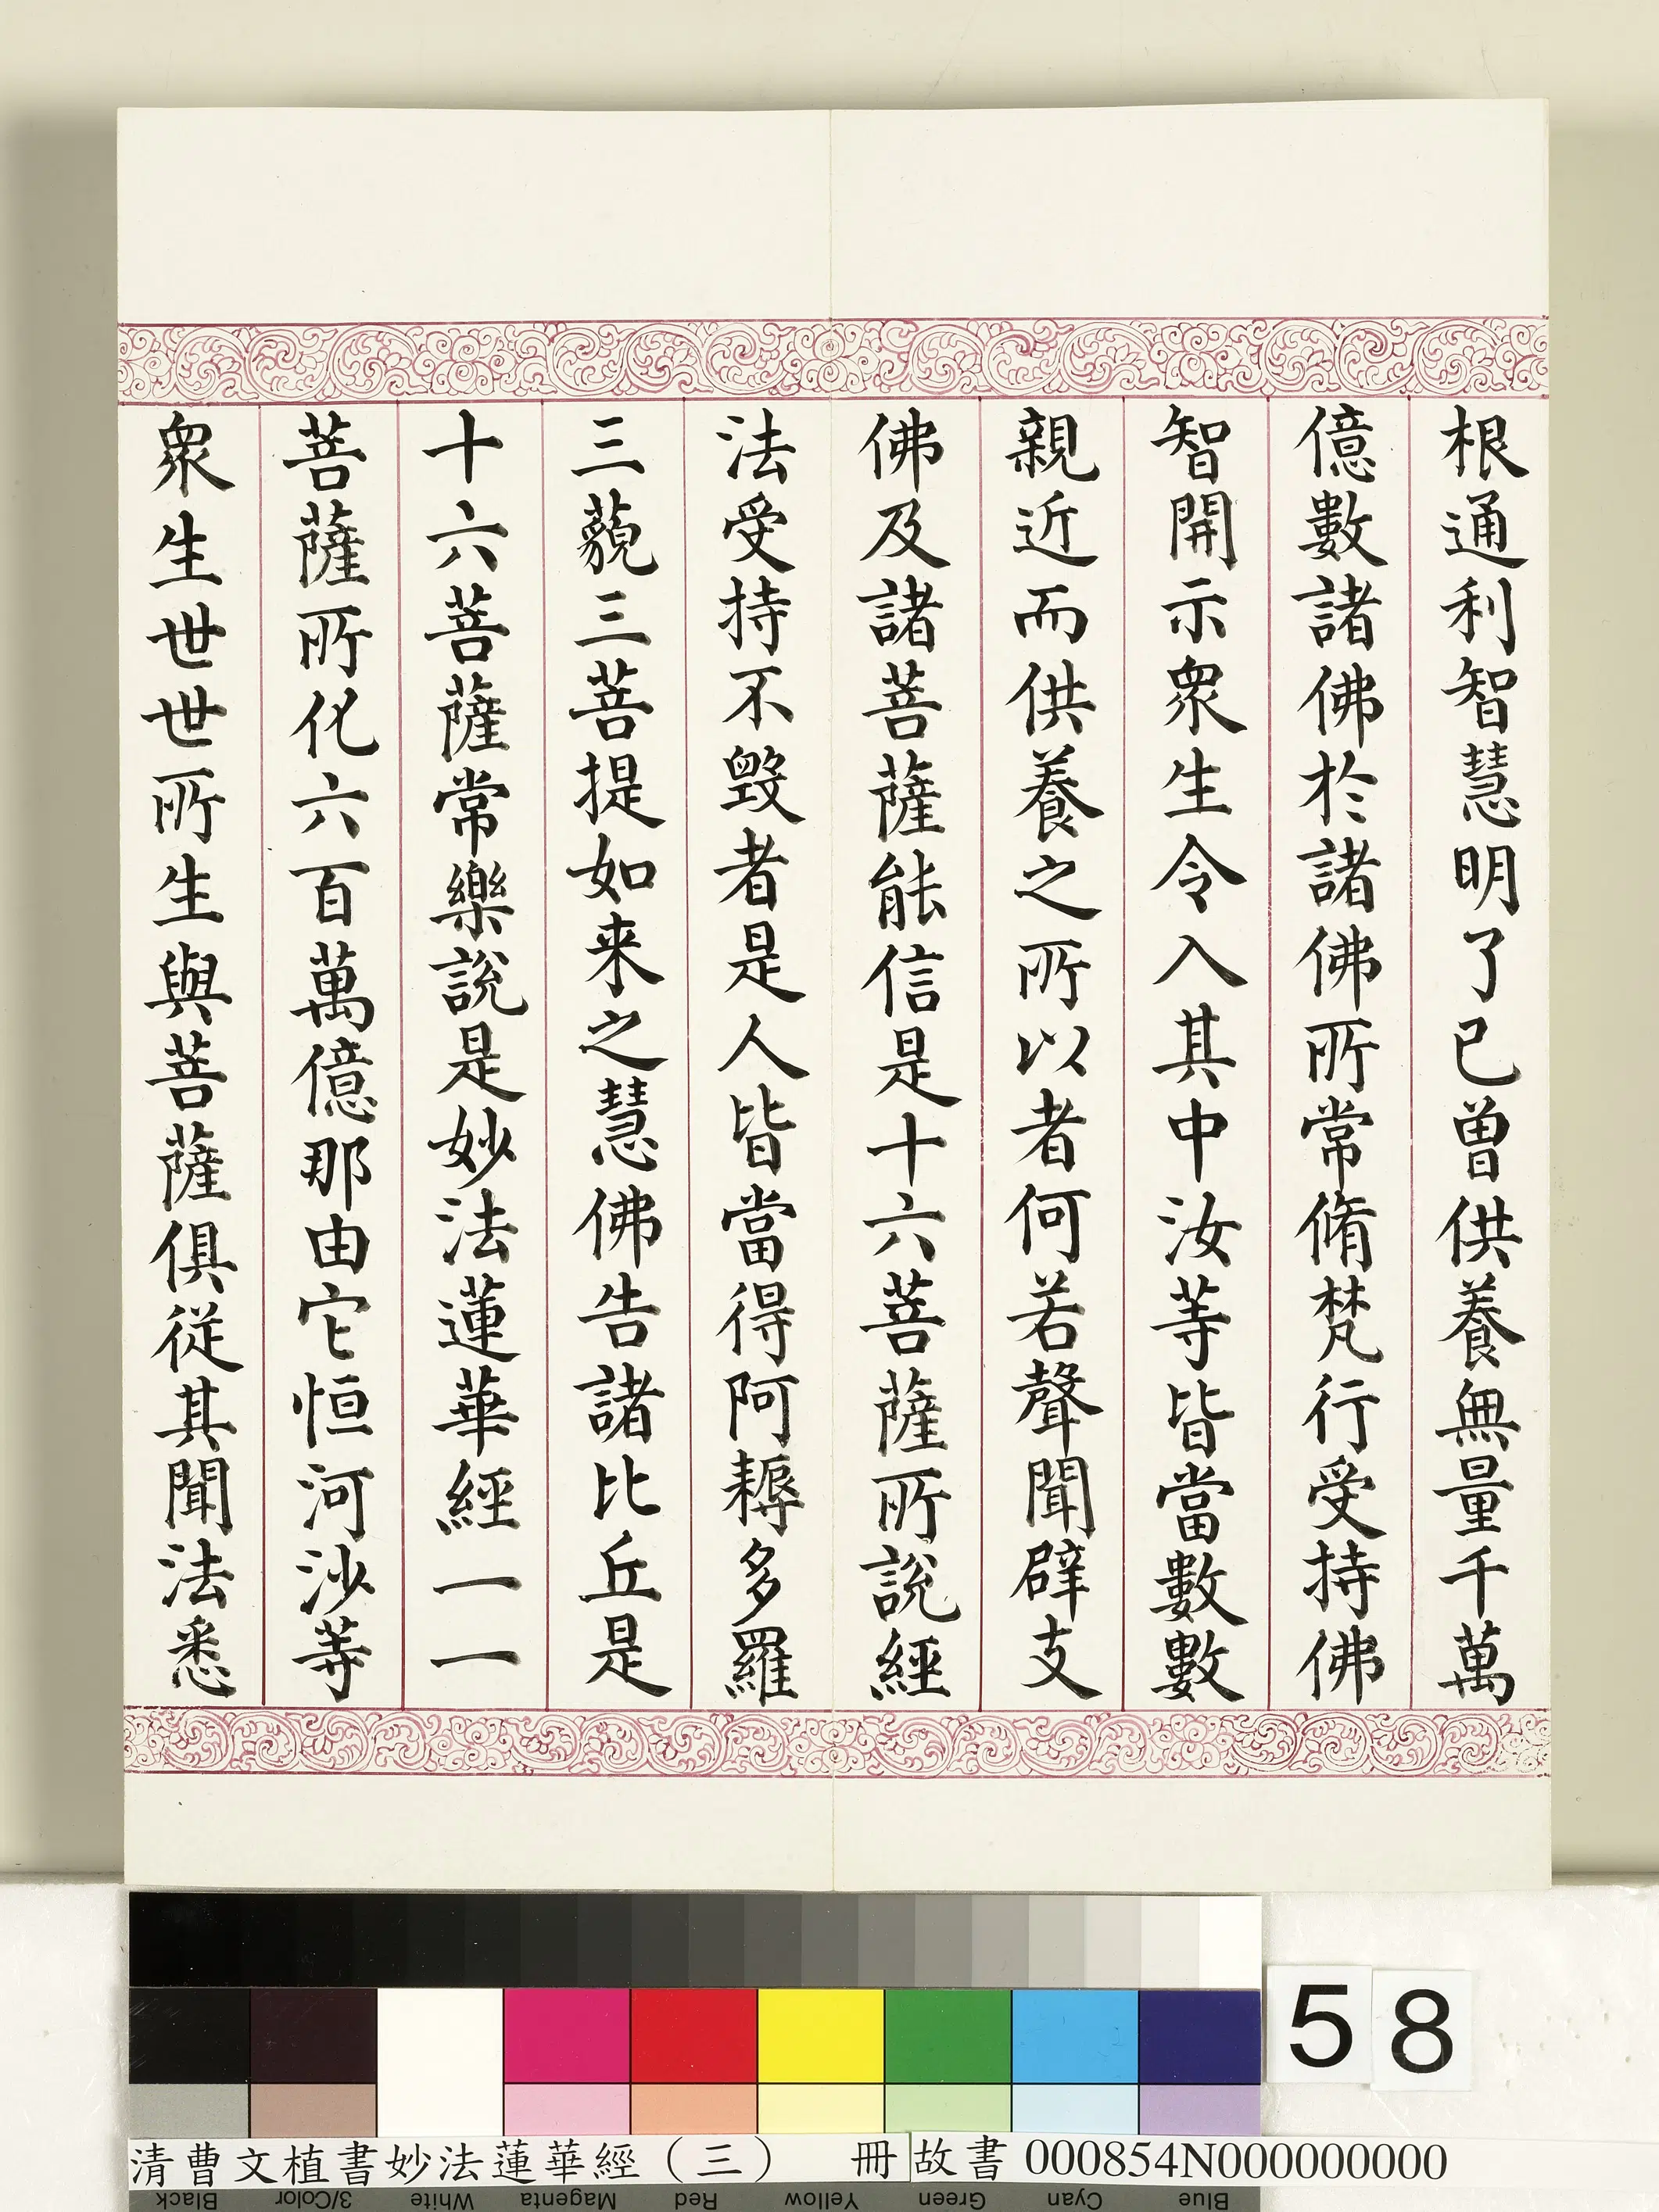 根通利智慧明了已曾供養無量千萬
億數諸佛於諸佛所常脩梵行受持佛
智開示衆生令入其中汝等皆當數數
親近而供養之所以者何若聲聞辟支
佛及諸菩薩能信是十六菩薩所說經
法受持不毀者是人皆當得阿耨多羅
三藐三菩提如来之慧佛告諸比丘是
十六菩薩常樂說是妙法蓮華經一一
菩薩所化六百萬億那由它恒河沙等
衆生世世所生與菩薩俱從其聞法悉
58
清曹文植書妙法蓮華經（三） 冊 故書 000854N000000000
Black 3/Color White Magenta Red Yellow Green Cyan Blue